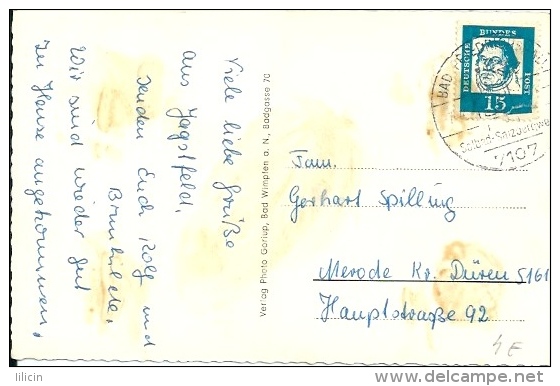 Viele liebe Grüße
aus Jagstfeld,
senden Euch Rolf und
Brunhilde.
Wir sind wieder gut
zu Hause angekommen,
Verlag Photo Gorlup, Bad Wimpfen a. N., Badgasse 70
DEUTSCHE
BUNDES
POST
15
BAD
7107
Fam.
Gerhart Spilling
Merode Kr. Düren 5161
Hauptstraße 92
lilicin
delcampe.net